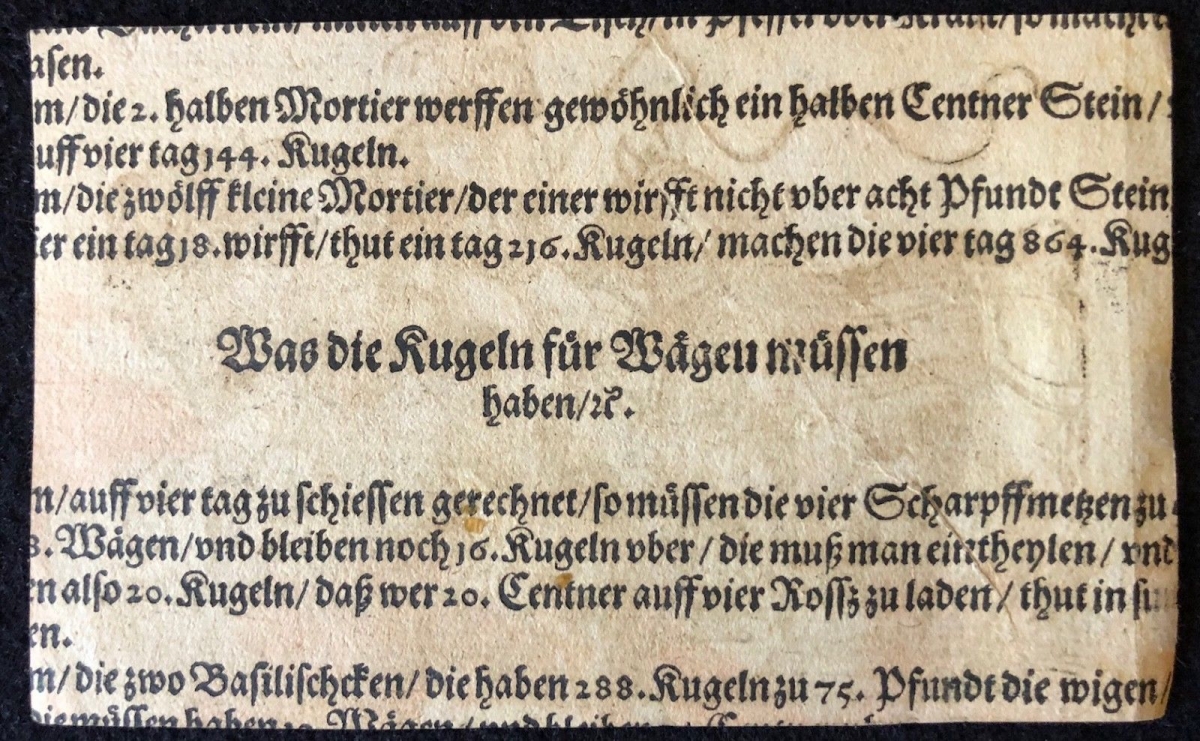 auff den Tisch/in Pfeffer oder Kraut/so machet
asen.
m/die 2. halben Mortier werffen gewöhnlich ein halben Centner Stein/
uff vier tag 144. Kugeln.
m/die zwölff kleine Mortier/der einer wirfft nicht vber acht Pfundt Stein
ier ein tag 18. wirfft/thut ein tag 216. Kugeln/machen die vier tag 864. Kug
Was die Kugeln für Wägen müssen
haben/ꝛc.
n/auff vier tag zu schiessen gerechnet/so müssen die vier Scharpffmetzen zu
8. Wägen/vnd bleiben noch 16. Kugeln vber/die muß man eintheylen/vnd
en also 20. Kugeln/daß wer 20. Centner auff vier Rossz zu laden/thut in su
en.
m/die zwo Basilischcken/die haben 288. Kugeln zu 75. Pfundt die wigen/
müssen haben Wägen/vnd bleiben